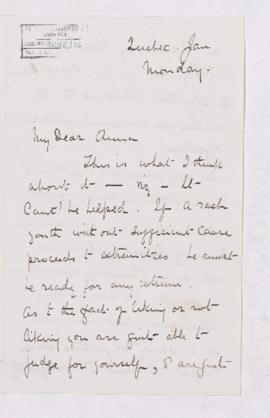 Quebec. Jan
Monday.
My Dear Anna
This is what I think
about it — viz — It
Can't be helped. If a rash
youth without sufficient cause
proceeds to extremities, he must
be ready for any extreme.
As to the fact of liking or not
liking you are quite able to
judge for yourself, & are